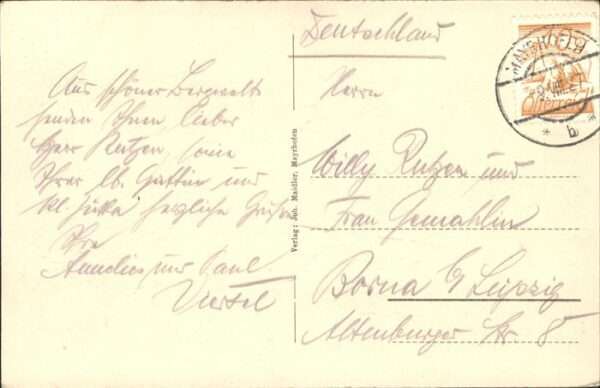 Aus schöner Bergwelt
senden Ihnen lieber
Herr Rutzen, sowie
Ihrer lb. Gattin und
kl. herzliche Grüße
Ihre
Annelies und Paul
Viertel
Verlag: Joh. Maidler, Mayrhofen
Deutschland
Herrn
Willy Rutzen und
Frau Gemahlin
Borna b/ Leipzig
Altenburger Str 8
MAYRHOFEN
* b *
Österreich